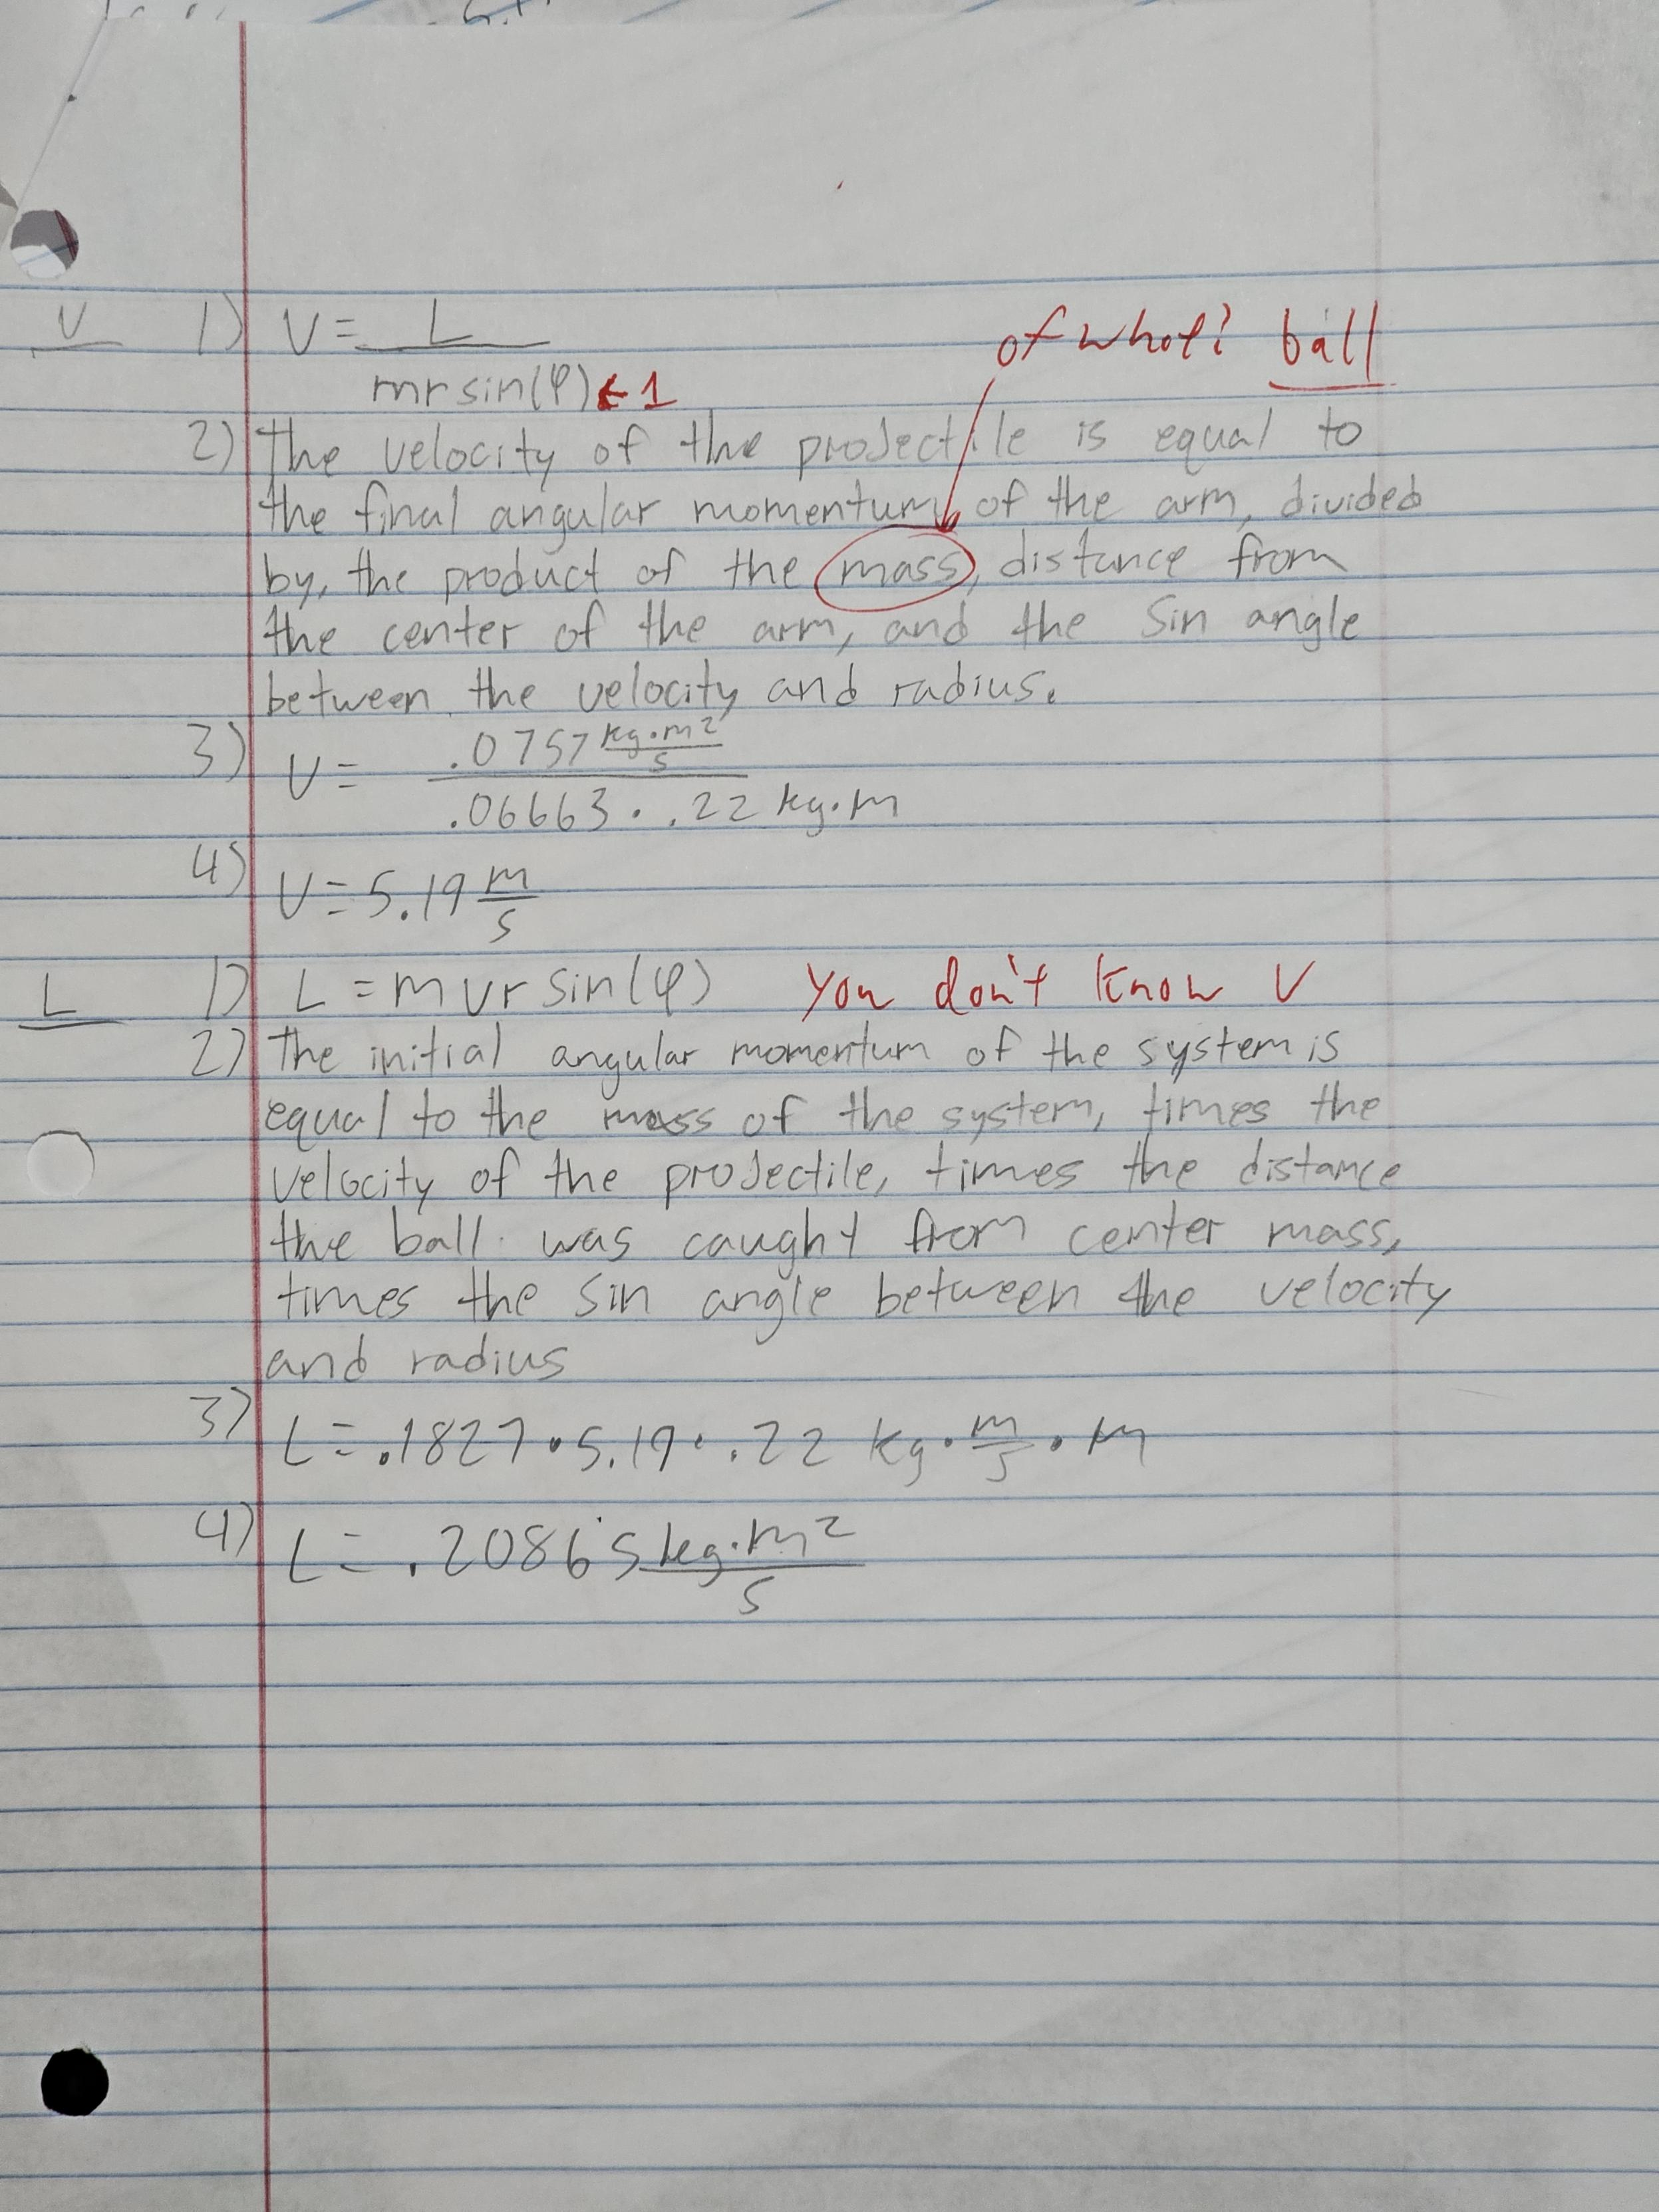 of what? ball
V 1) V = L / mr sin(φ) ← 1
2) The velocity of the projectile is equal to
the final angular momentum of the arm, divided
by, the product of the mass, distance from
the center of the arm, and the sin angle
between the velocity and radius.
3) V = .0757 kg·m² / s / .06663 · .22 kg·m
4) V = 5.19 m/s
L 1) L = m v r sin(φ) you don't know V
2) The initial angular momentum of the system is
equal to the mass of the system, times the
velocity of the projectile, times the distance
the ball was caught from center mass,
times the sin angle between the velocity
and radius
3) L = .1827 · 5.19 · .22 kg · m/s · m
4) L = .20865 kg·m² / s